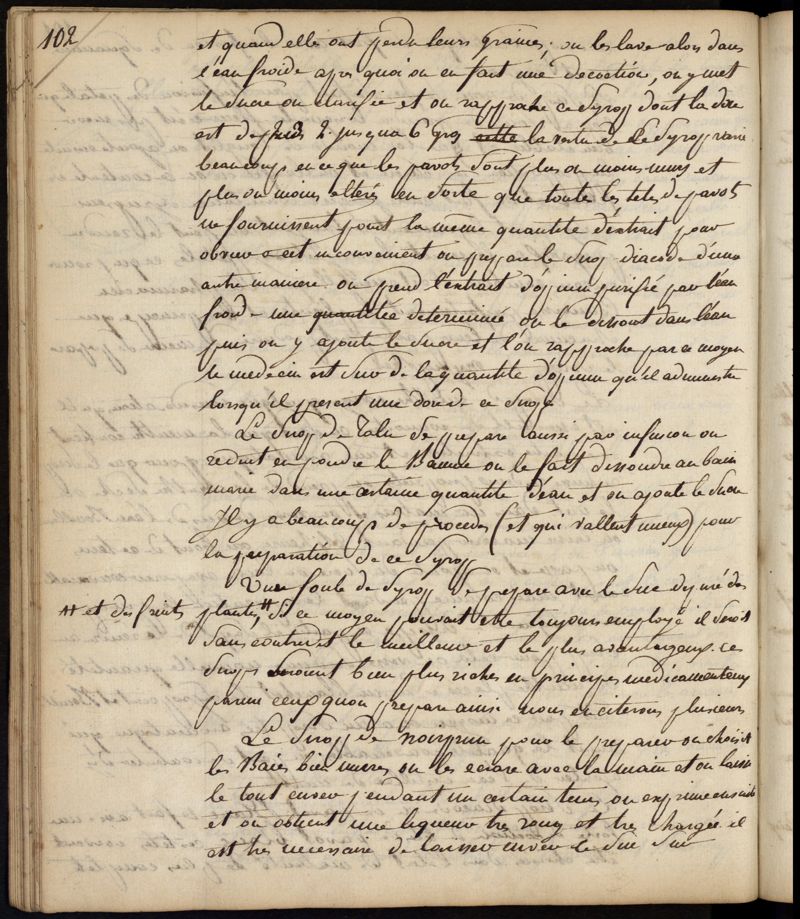 102
et quand elles ont perdu leurs graines; on les lave alors dans
l'eau froide apres quoi on en fait une decoction, on y met
le sucre on clarifie et on rapproche ce Syrop dont la dose
est depuis 2 jusqua 6 gros cette la vertu de ce Syrop varie
beaucoup en ce que les pavots sont plus ou moins murs et
plus ou moins alterés en sorte que toute les tetes de pavots
ne fournissent point la même quantité d'extrait pour
obvier a cet inconvenient on prepare le Sirop diacode d'une
autre maniere on prend l'extrait d'opium purifié par l'eau
froide une quantitée determiné on le dissout dans l'eau
puis on y ajoute le sucre et l'on rapproche par ce moyen
le medecin est sur de la quantité d'opium qu'il administre
lorsqu'il present une dose de ce Sirop
Le Sirop de Tolu se prepare aussi par infusion on
reduit en poudre le Baume on le fait dissoudre au bain
marie dans une certaine quantité d'eau et on ajoute le sucre
Il y a beaucoup de procedes (et qui vallent mieux) pour
la preparation de ce Syrop
Une foule de Syrop se prepare avec le Suc depuré des
# et des fruits plantes # Si ce moyen pouvait etre toujours employé il seroit
sans contredit le meilleur et le plus avantageux. ces
Sirops seroient bien plus riches en principes medicamenteux
parmi ceux qu'on prepare ainsi nous en citerons plusieurs
Le Sirop de noirprun pour le preparer on choisit
les Baies bien mures on les ecrase avec la main et on laisse
le tout cuver pendant un certain tems on exprime ensuite
et on obtient une liqueur tres rouge et tres chargée il
est tres necessaire de laisser cuver le Suc sur